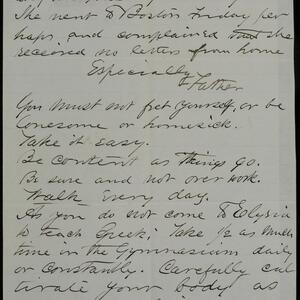 She went to Boston Friday per
haps and complained that she
received no letters from home
Especially
Father
You must not fret yourself, or be
lonesome or homesick.
Take it easy.
Be content as things go.
Be sure and not over work.
Walk every day.
As you do not come to Elysia
to teach Greek; Take ½ as much
time in the Gymnasium daily
or constantly. Carefully cul
tivate your body as